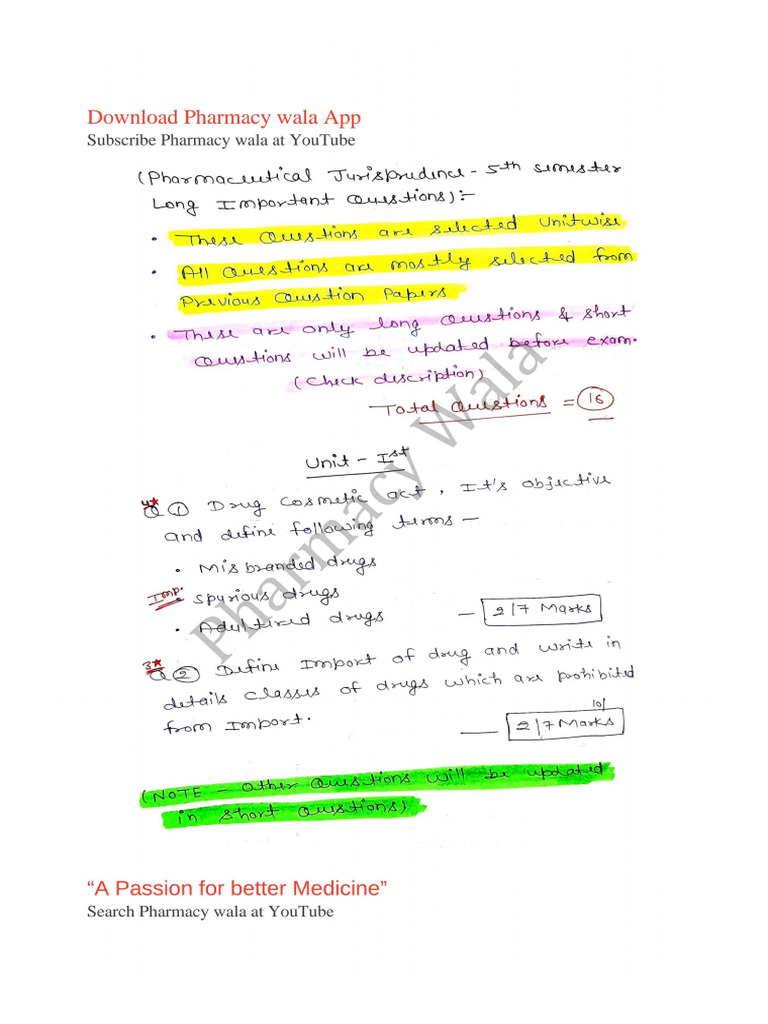 Download Pharmacy wala App
Subscribe Pharmacy wala at YouTube
(Pharmaceutical Jurisprudence - 5th semester
Long Important Questions):-
• These Questions are selected Unitwise
• All Questions are mostly selected from
Previous Question Papers
• These are only long Questions & short
Questions will be updated before exam.
(Check description)
Total Questions = 16
Unit - Ist
4* Q 1 Drug Cosmetic act, It's Objective
and define following terms -
• Misbranded drugs
Imp. • Spurious drugs
• Adultired drugs — 2/7 Marks
3* Q 2 Define Import of drug and write in
details classes of drugs which are prohibited
from Import. — 2/7 Marks
10/
(NOTE - Other Questions will be updated
in short Questions)
Pharmacy Wala
“A Passion for better Medicine”
Search Pharmacy wala at YouTube